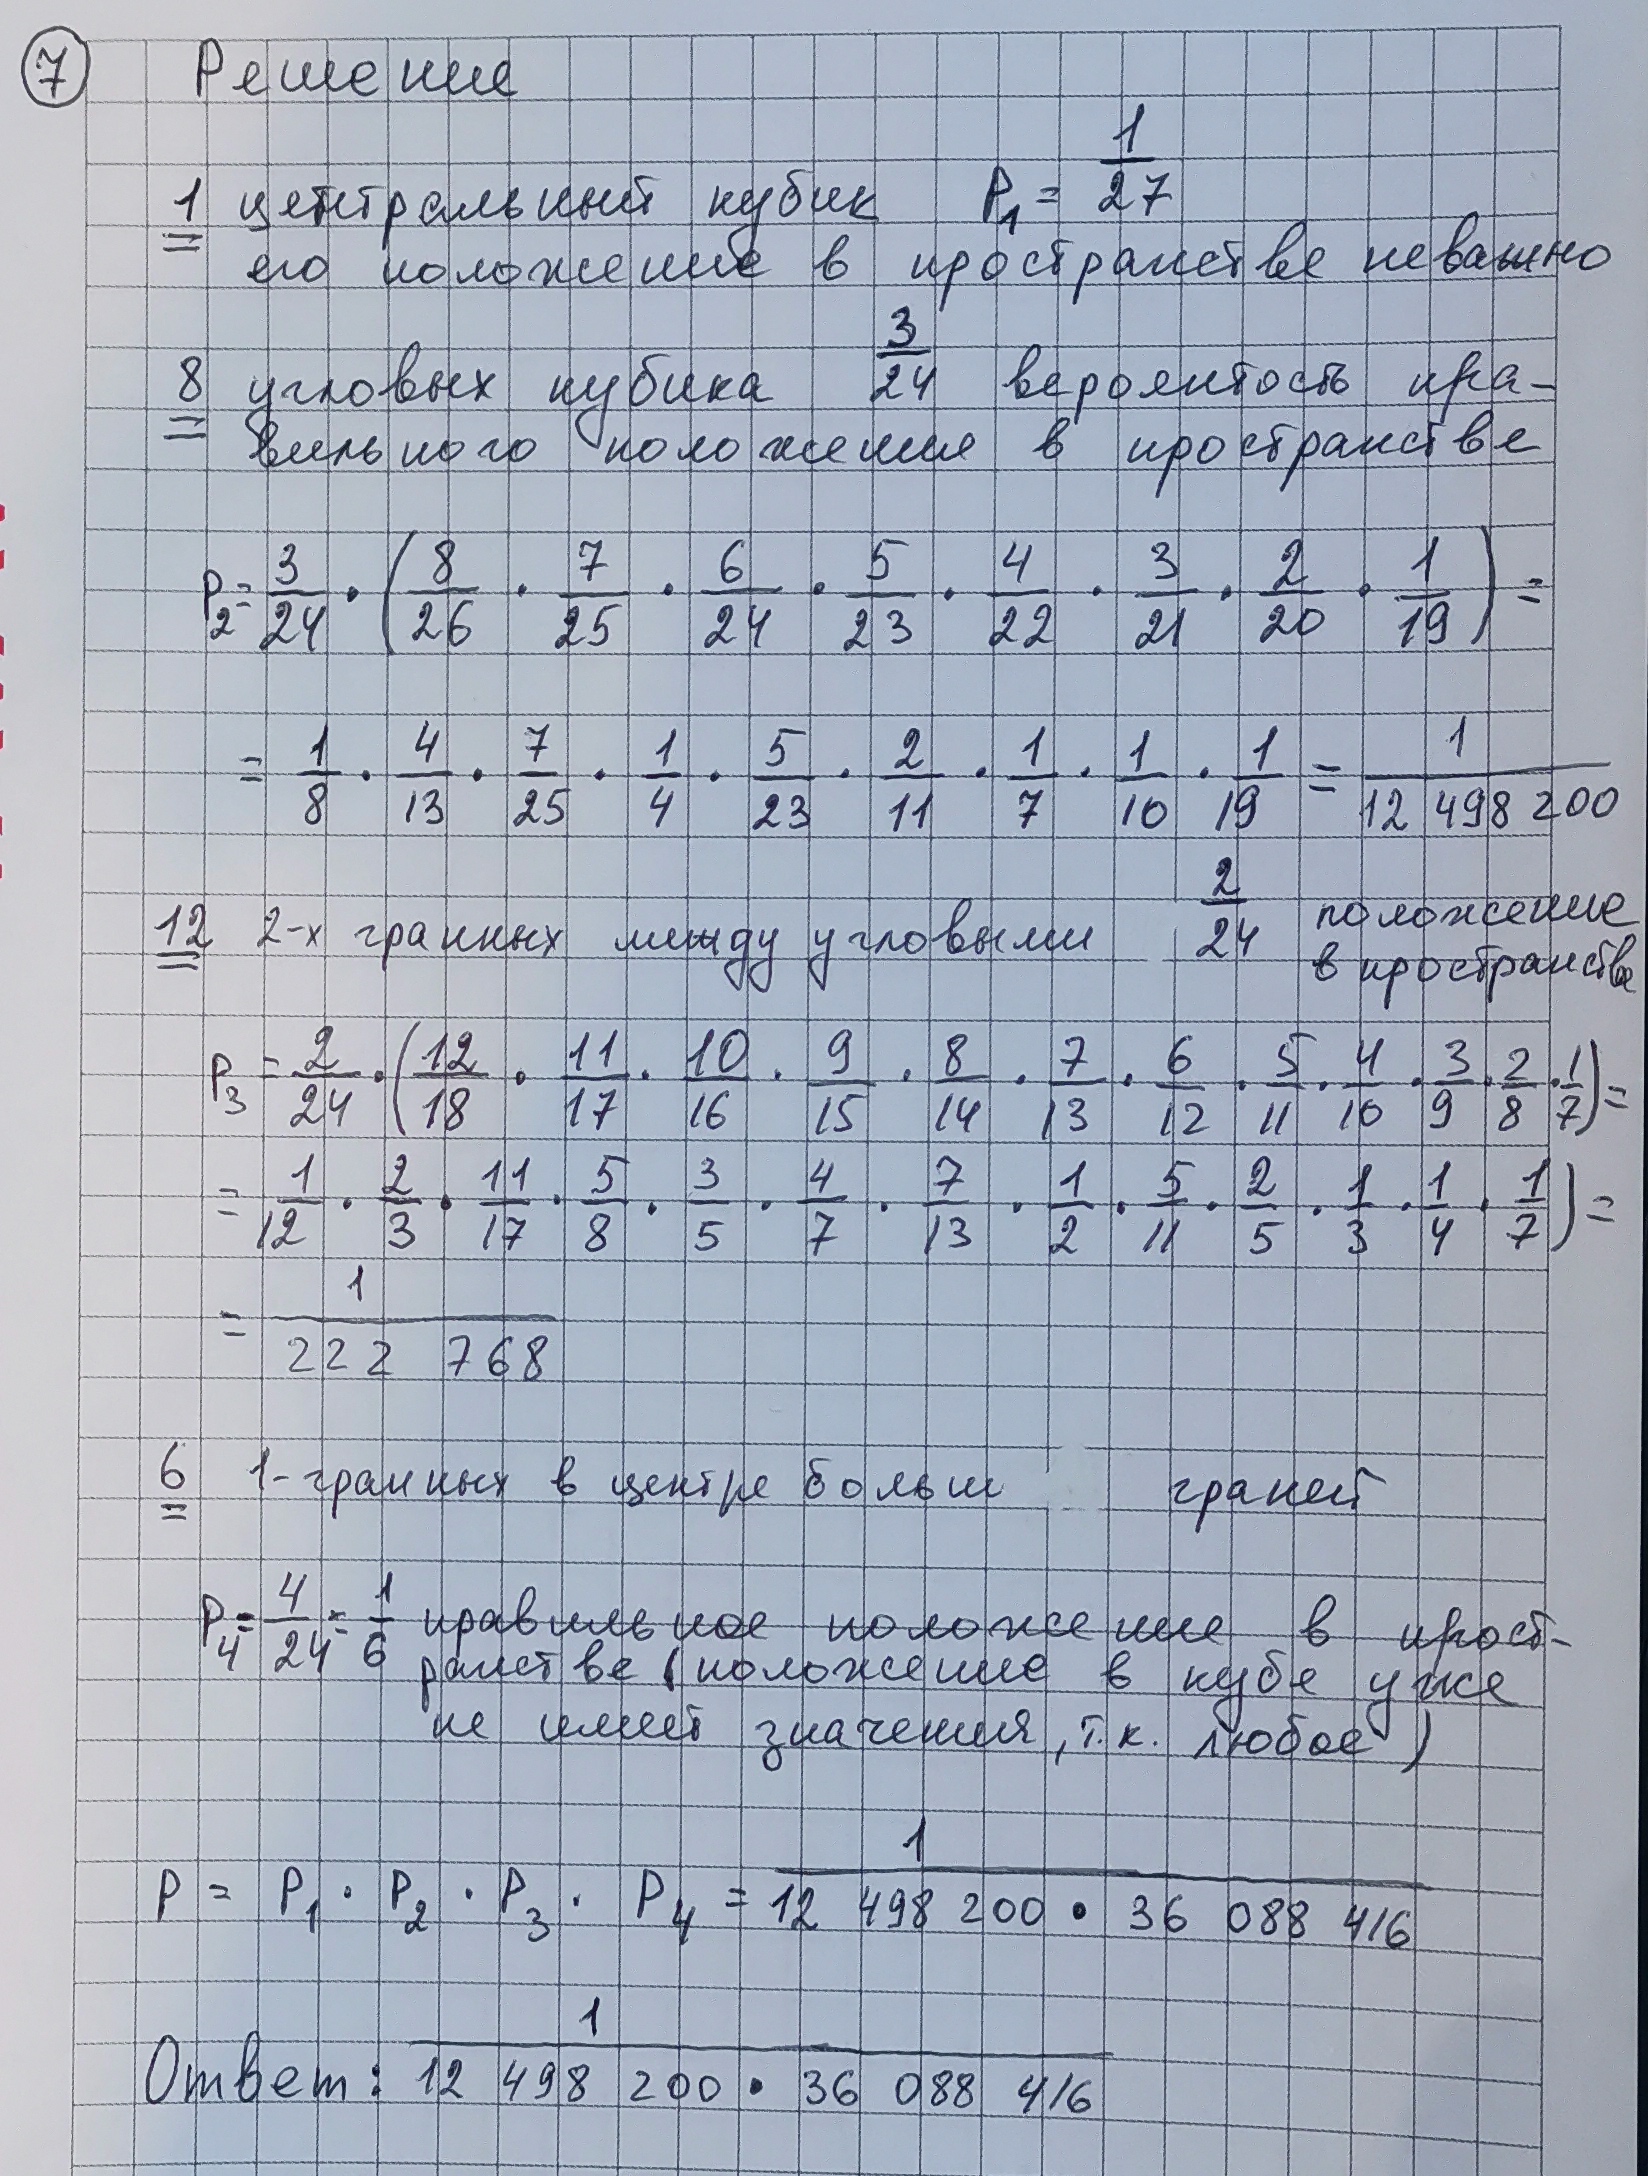 7 Решение
1 центральный кубик P₁ = 1/27
его положение в пространстве неважно
8 угловых кубика 3/24 вероятность пра-
вильного положения в пространстве
P₂ = 3/24 · (8/26 · 7/25 · 6/24 · 5/23 · 4/22 · 3/21 · 2/20 · 1/19) =
= 1/8 · 4/13 · 7/25 · 1/4 · 5/23 · 2/11 · 1/7 · 1/10 · 1/19 = 1/12 498 200
12 2-х гранных между угловыми 2/24 положение
в пространстве
P₃ = 2/24 · (12/18 · 11/17 · 10/16 · 9/15 · 8/14 · 7/13 · 6/12 · 5/11 · 4/10 · 3/9 · 2/8 · 1/7) =
= 1/12 · 2/3 · 11/17 · 5/8 · 3/5 · 4/7 · 7/13 · 1/2 · 5/11 · 2/5 · 1/3 · 1/4 · 1/7) =
= 1/222 768
6 1-гранных в центре больш граней
P₄ = 4/24 = 1/6 правильное положение в прост-
ранстве (положение в кубе уже
не имеет значения, т.к. любое)
P = P₁ · P₂ · P₃ · P₄ = 1/12 498 200 · 36 088 416
Ответ: 1/12 498 200 · 36 088 416